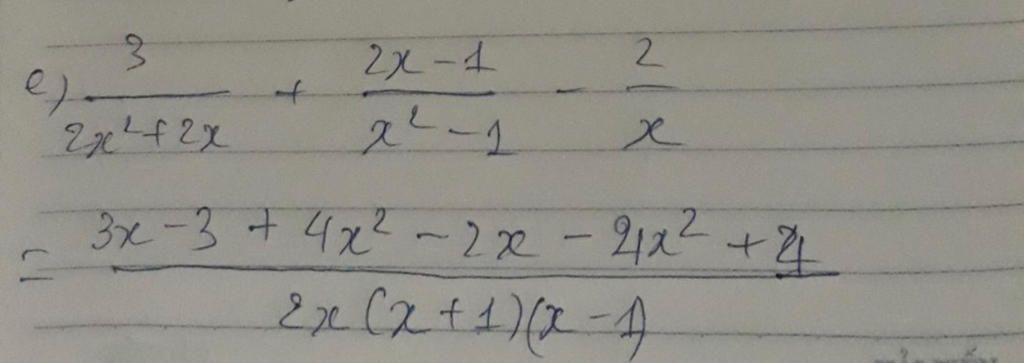 e) 3/(2x²+2x) + (2x-1)/(x²-1) - 2/x
= (3x-3+4x²-2x-4x²+4)/(2x(x+1)(x-1))